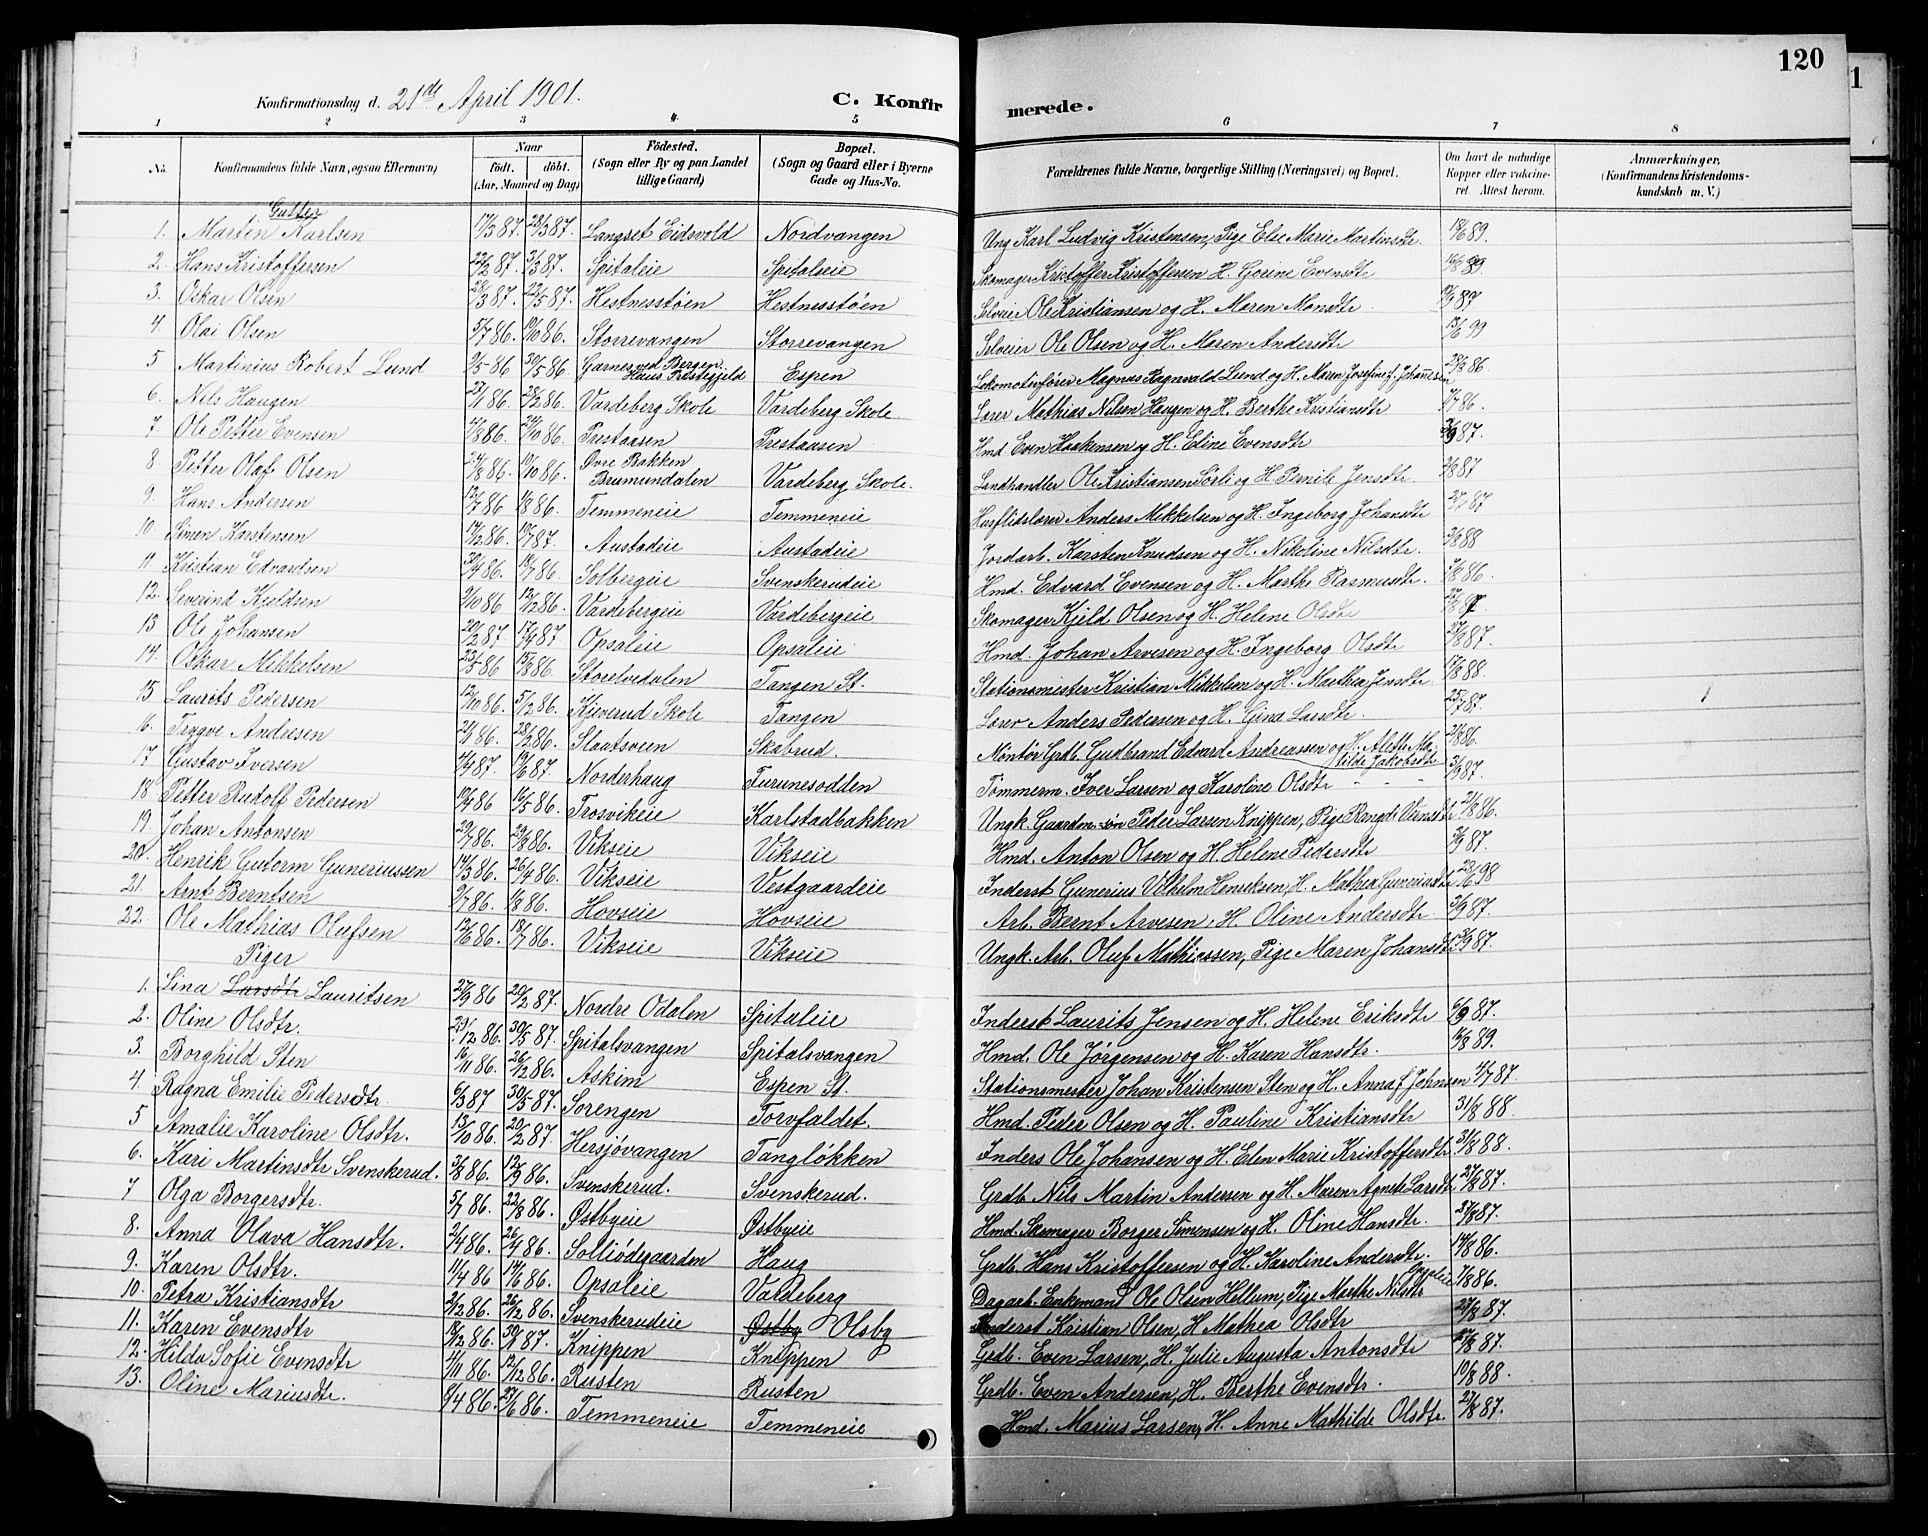 120
1
Konfirmationsdag d. 21de April 1901.
C. Konfirmerede.
1 2 3 4 5 6 7 8
No. Konfirmandens fulde Navn, ogsaa Efternavn) Naar födt. döbt. (Aar, Maaned og Dag) Födested. (Sogn eller By og paa Landet tillige Gaard) Bopæl. (Sogn og Gaard eller i Byerne Gade og Hus-No. Forældrenes fulde Navne, borgerlige Stilling (Næringsvei) og Bopæl. Om havt de naturlige Kopper eller vakcineret Attest herom. Anmærkninger, (Konfirmandens Kristendomskundskab m. V.)
Gutter
1. Martin Karlsen 17/3 87. 28/3 87. Langset Eidsvold Nordvangen Ung Karl Ludvig Kristensen, Pige Else Marie Martinsdtr 18/6 89.
2. Hans Kristoffersen 22/2 87. 3/3 87. Spitaleie Spitaleie Skomager Kristoffer Kristoffersen H. Gorine Evensdtr 89
3. Oskar Olsen 28/3 87. 22/5 87. Hestnesstöen Hestnesstöen Selveier Ole Kristiansen og H. Maren Monsdtr 87
4. Olai Olsen 5/7 86. 86. Storrevangen Storrevangen Selveier Ole Olsen og H. Maren Andersdtr 99
5 Martinius Robert Lund 2/5 86 30/5 86 Garnes ved Bergen. Haus Præstegjeld Espen Lokomotivfører Magnus Ragnvald Lund og H. Maren Josefine f. Johannesen 86
6. Nils Haugen 27/1 86. 28/2 86. Vardeberg Skole Vardeberg Skole Lærer Mathias Nilsen Haugen og H. Berthe Kristiansdtr 86.
7. Ole Petter Evensen 86. 86. Prestaasen Prestaasen Hmd Even Haakensen og H. Eline Evensdtr 87.
8. Petter Olaf Olsen 24/8 86. 10/10 86. Øvre Bakken Brumundalen Vardeberg Skole. Landhandler Ole Kristiansen Sörli og H. Pernile Jensdtr. 87
9. Hans Andersen 12/7 86 1/8 86. Temmeneie Temmeneie Husflidslærer Anders Mikkelsen og H. Ingeborg Johansdtr 87
10. Simen Karstensen 17/12 86. 87. Austadeie Austadeie Jordarb. Karsten Knudsen og H. Nikoline Nilsdtr. 88
11 Kristian Edvardsen 30/4 86. 86. Solbergeie Svenskerudeie Hmd. Edvard Evensen og H. Marthe Rasmusdtr. 86.
12. Severind Kjeldsen 9/10 86 12/12 86. Vardebergeie Vardebergeie Skomager Kjeld Olsen og H. Helene Olsdtr 27/8 87.
13 Ole Johansen 20/2 87. 17/4 87. Opsaleie Opsaleie Hmd. Johan Arvesen og H. Ingeborg Olsdtr 27/8 87.
14. Oskar Mikkelsen 23/5 86 15/8 86. Storelvedalen Tangen St. Stationsmester Kristian Mikkelsen og H. Marthea Jensdtr 17/8 88.
15 Laurits Pedersen 12/10 86. 5/12 86. Kjeverud Skole Tangen Lærer Anders Pedersen og H. Gina Larsdtr. 25/7 87.
16. Trygve Andresen 21/1 86. 28/2 86. Slaatsveen Skabrud. Montör Grdb. Gudbrand Edvard Andreassen og H. Alette Matilde Jakobsdtr 86.
17 Gustav Iversen 4/4 87. 19/6 87. Norderhaug Furunesodden Tömmerm. Iver Larsen og Karoline Olsdtr 87.
18 Petter Rudolf Pedersen 10/4 86 16/5 86. Trosvikeie Karlstadbakken Ungk. Gaardm. sön Peder Larsen Knippen, Pige 86.
19. Johan Antonsen 22/7 86. 29/8 86. Vikseie Vikseie Hmd. Anton Olsen og H. Helene Pedersdtr 87.
20. Henrik Gutorm Guneriussen 14/3 86. 26/4 86. Vikseie Vestgaardeie Inderst Gunerius Vilhelm Henriksen, H. Mathea Guneriusdtr 98
21. Arnt Berntsen 9/7 86. 1/8 86. Hovseie Hovseie Arb. Bernt Arvesen, H. Oline Andersdtr 87.
22. Ole Mathias Olufsen 12/6 86. 18/7 86. Vikseie Vikseie Ungk. Arb. Oluf Mathiassen, Pige Maren Johansdtr. 87.
Piger
1. Lina Larsdtr Lauritsen 27/9 86 20/2 87. Nordre Odalen Spitaleie Inderst Laurits Jensen og H. Helene Eriksdtr 6/9 87.
2. Oline Olsdtr. 29/12 86. 30/5 87. Spitalsvangen Spitalsvangen Hmd. Ole Jörgensen og H. Karen Hansdtr. 89.
3. Borghild Sten 16/11 86. 26/12 86. Askim Espen St. Stationsmester Johan Kristensen Sten og H. Anna f. Johnsen 4/7 87.
4. Ragna Emilie Pedersdtr. 6/3 87 30/5 87. Sorengen Torvfaldet. Hmd. Peder Olsen og H. Pauline Kristiansdtr 31/8 88.
5 Amalie Karoline Olsdtr. 13/10 86. 20/2 87. Hersjövangen Tanglökken Inders Ole Johansen og H. Elen Marie Kristoffersdtr. 31/8 88.
6. Kari Martinsdtr Svenskerud. 3/8 86. 12/9 86. Svenskerud. Svenskerud. Grdb. Nils Martin Andersen og H. Maren Agnete Larsdtr 27/8 87.
7 Olga Borgersdtr. 5/7 86. 22/8 86. Østbyeie Østbyeie Hmd. Skomager Borger Simensen og H. Oline Hansdtr. 27/8 87.
8. Anna Olava Hansdtr. 2/4 86. 26/4 86. Solliödegaarden Haug Grdb. Hans Kristoffersen og H. Karoline Andersdtr. 14/8 86.
9. Karen Olsdtr. 11/4 86 14/6 86. Opsaleie Vardeberg Dagarb. Enkemand Ole Olsen Hellum, Pige Marthe Nilsdtr Opsaleie 7/8 86.
10. Petra Kristiansdtr 2/12 86. 26/12 86. Svenskerudeie Østby Olsby Inderst Kristian Olsen, H Mathea Olsdtr 27/8 87.
11. Karen Evensdtr 18/12 86. 30/1 87. Knippen Knippen Grdb. Even Larsen, H. Julie Augusta Antonsdtr 87.
12. Hilda Sofie Evensdtr 1/11 86. 12/12 86. Rusten Rusten Grdb. Even Andersen, H. Berthe Evensdtr. 19/8 88.
13. Oline Mariusdtr. 8/4 86. 27/6 86. Temmeneie Temmeneie Hmd. Marius Larsen, H. Anne Mathilde Olsdtr. 27/8 87.